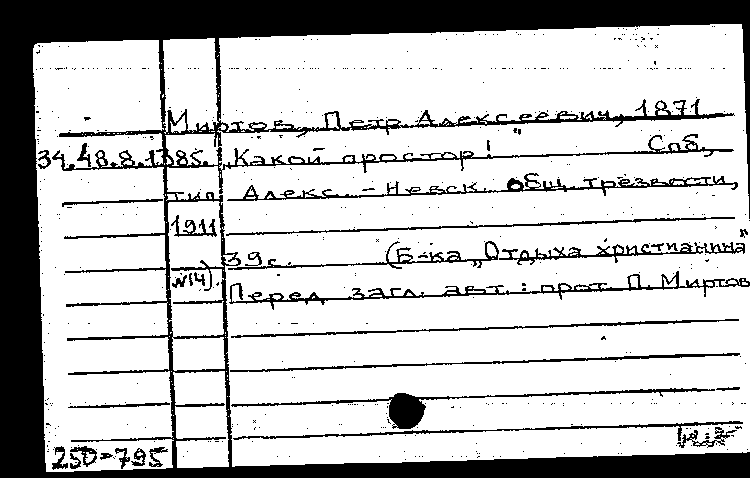 Миртов, Петр Алексеевич, 1871
34.48.8.1385. „Какой простор!" Спб.,
тип. Алекс.-Невск. общ. трезвости,
1911
39 с. (Б-ка „Отдыха христианина"
№14).
Перед загл. авт.: прот. П. Миртов
250-795